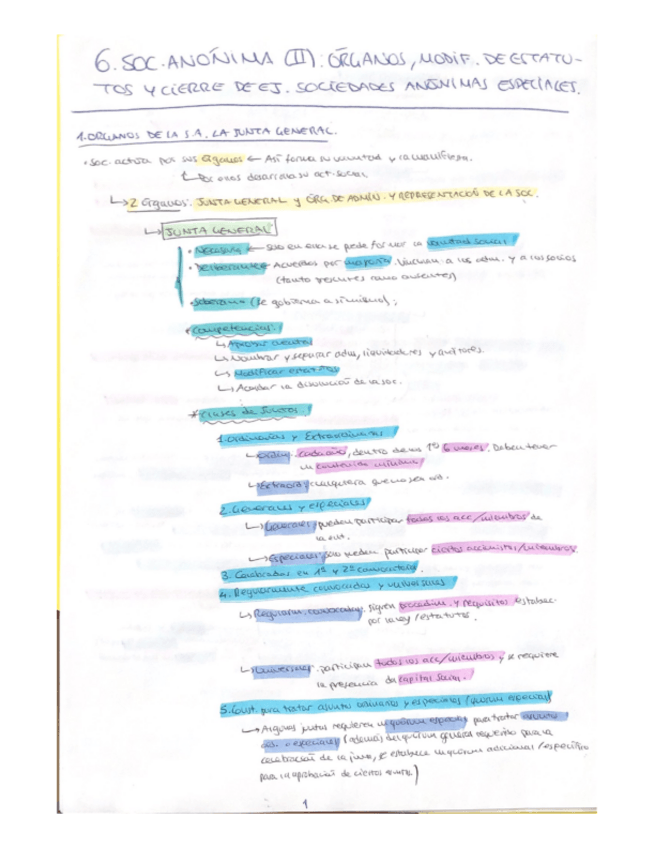 6. SOC. ANÓNIMA (II): ÓRGANOS, MODIF. DE ESTATU-
TOS Y CIERRE DE EJ. SOCIEDADES ANÓNIMAS ESPECIALES.
1. ORGANOS DE LA S.A. LA JUNTA GENERAL.
• Soc. actúa por sus órganos ← Así forma su voluntad y la manifiesta.
desarrolla su act. social
↳ 2 órganos: JUNTA GENERAL y ÓRG. DE ADMIN. Y REPRESENTACIÓN DE LA SOC.
↳ JUNTA GENERAL
• Necesaria ← Solo en ella se puede formar la voluntad social
• Deliberante ← Acuerdos por mayoría. Vinculan a los adm. y a los socios
(tanto presentes como ausentes)
• Soberana (se gobierna a sí misma);
* Competencias:
↳ Aprobar cuentas
↳ Nombrar y separar adms, liquidadores y auditores.
↳ Modificar estatutos
↳ Acordar la disolución de la soc.
* Clases de Juntas:
1. Ordinarias y Extraordinarias
↳ Ordin: cada año, dentro de los 1º 6 meses. Deben tener
un contenido mínimo
↳ Extraord: cualquiera que no sea ord.
2. Generales y especiales
↳ Generales: pueden participar todos los acc/miembros de
la ent.
↳ Especiales: solo pueden participar ciertos accionistas/miembros.
3. Celebradas en 1ª y 2ª convocatoria.
4. Regularmente convocadas y universales
↳ Regularm. convocadas: siguen procedim. y requisitos establec.
por la ley/estatutos.
↳ Universales: participan todos los acc/miembros y se requiere
la presencia del capital social.
5. Const. para tratar asuntos ordinarios y especiales (quórum especial)
↳ Algunas juntas requieren un quórum especial para tratar asuntos
ord. o especiales (además del quórum general requerido para la
celebración de la junta, se establece un quórum adicional/específico
para la aprobación de ciertos asuntos)
1